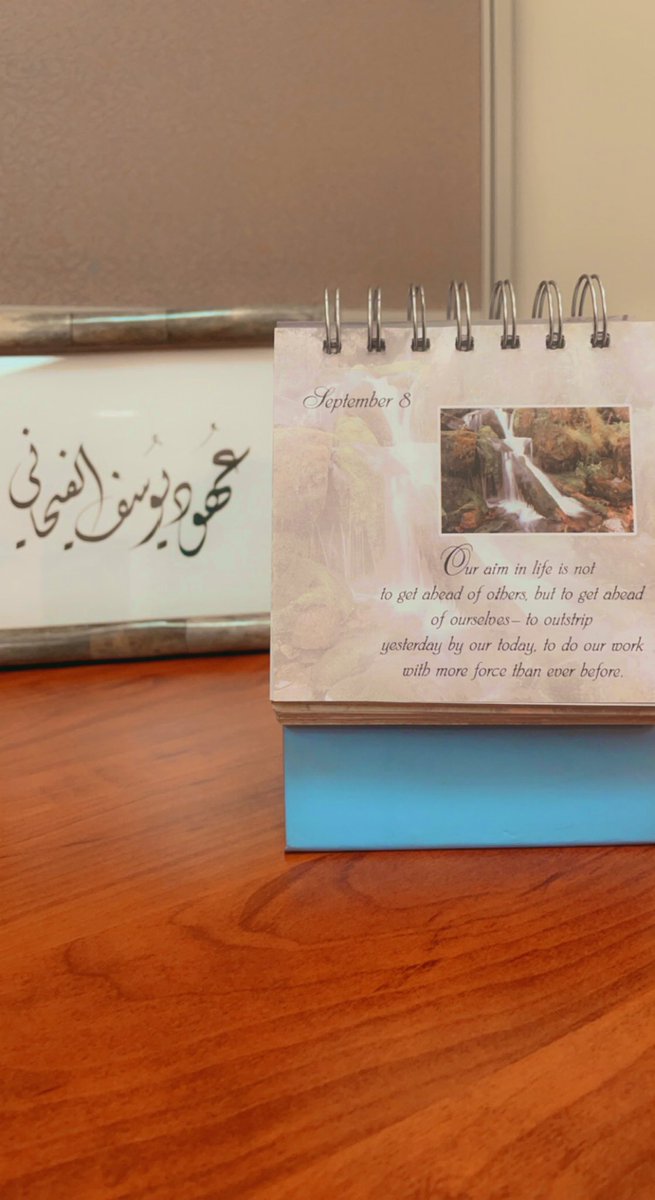 عُهود يُوسف الفيحاني
September 8
Our aim in life is not
to get ahead of others, but to get ahead
of ourselves– to outstrip
yesterday by our today, to do our work
with more force than ever before.